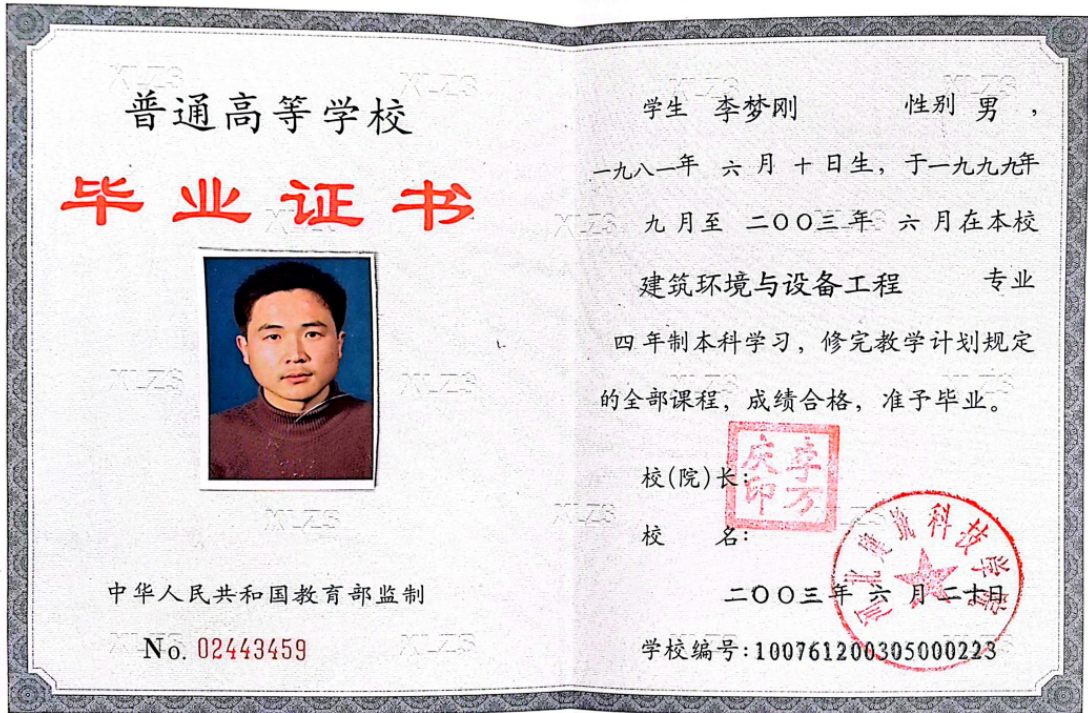 普通高等学校
毕业证书
中华人民共和国教育部监制
No. 02443459
学生 李梦刚 性别 男，
一九八一年 六 月 十 日生，于一九九九年
九 月至 二〇〇三 年 六 月在本校
建筑环境与设备工程 专业
四 年制本科学习，修完教学计划规定
的全部课程，成绩合格，准予毕业。
校(院)长：
李万庆印
校 名：
河北建筑科技学院
二〇〇三 年 六 月 二十日
学校编号：100761200305000223
XLZS